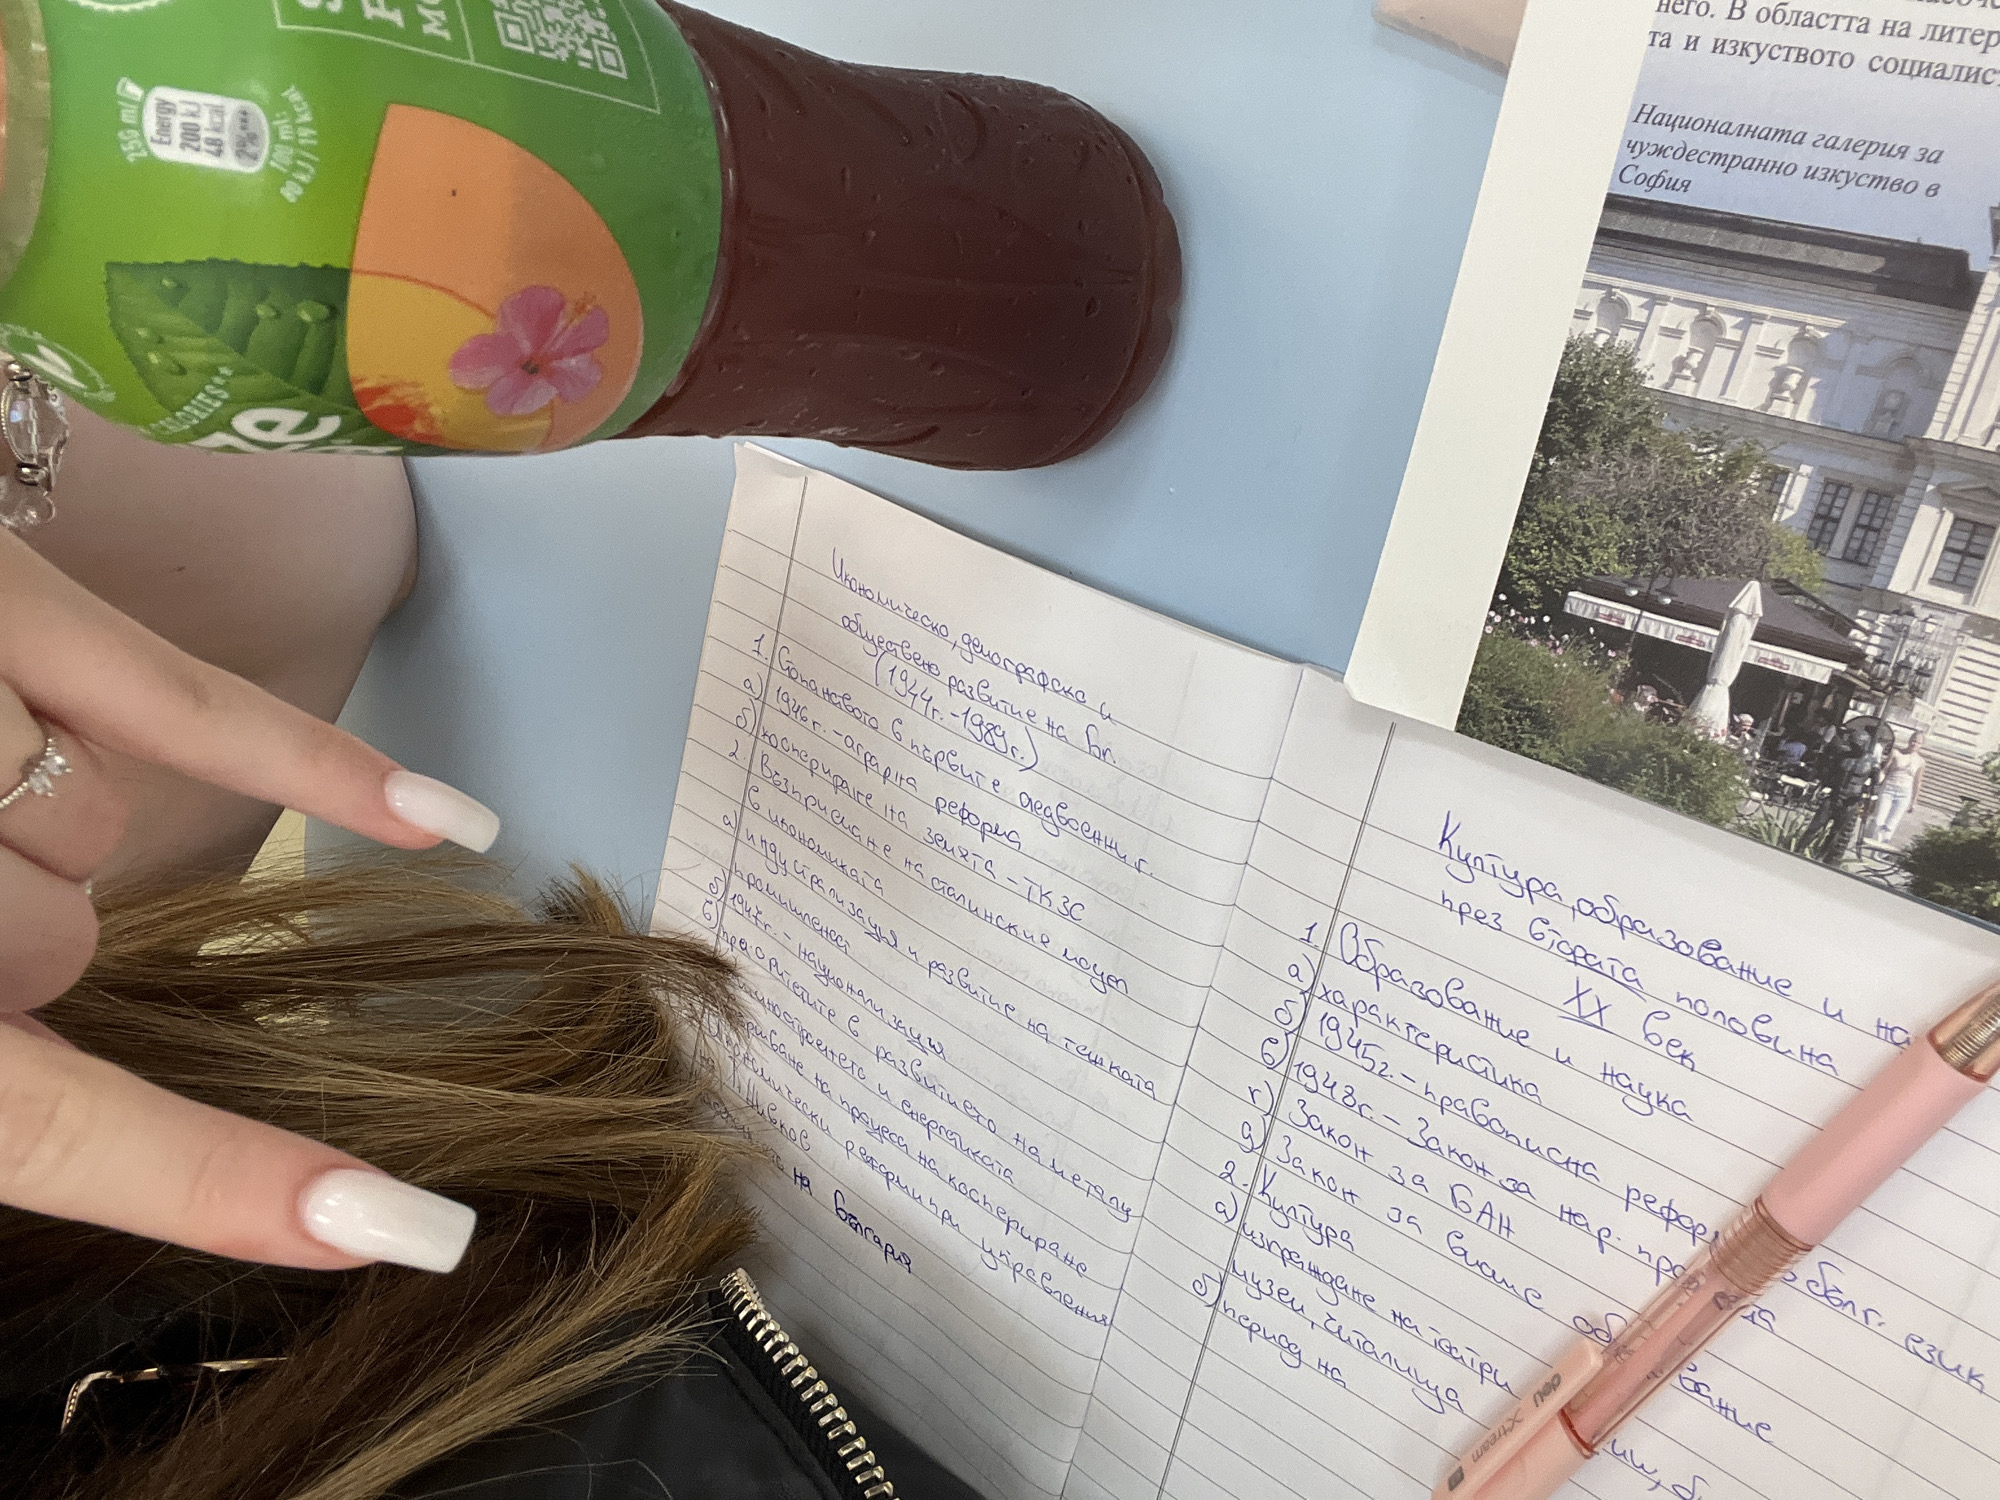 него. В областта на литер
та и изкуството социалист
Националната галерия за
чуждестранно изкуство в
София
250 ml
Energy
200 kJ
48 kcal
2%***
100 ml:
80 kJ / 19 kcal
CALORIES**
Икономическо, демографско и
обществено развитие на Бг.
(1944г. - 1989г.)
1. Стопанството в първите следвоенни г.
а) 1946г. - аграрна реформа
б) коопериране на земята - ТКЗС
2. Възприемане на сталинския модел
в икономиката
а) индустрализация и развитие на тежката
промишленост
б) 1947г. - национализация
в) приоритетите в развитието на металу
енергетиката
на процеса на коопериране
реформи при управления
на Т. Живков
на България
Култура, образование и на
през втората половина
XX век
1. Образование и наука
а) характеристика
б) 1945г. - правописна рефор
бълг. език
в) 1948г. - Закон за нар. про
г) Закон за БАН
д) Закон за висше об
вание
2. Култура
а) изграждане на театри
музеи, читалища
б) период на
deli Xtream